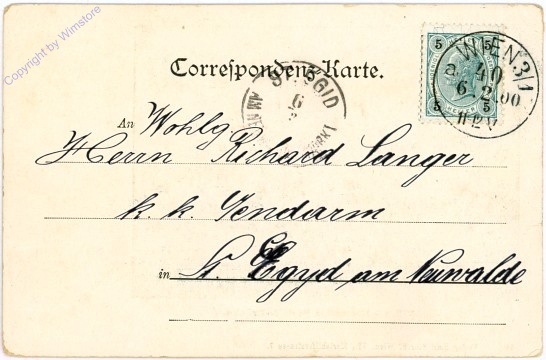 Copyright by Wimstore
Correspondenz-Karte.
5 5
WIEN 3/1
40
6.2.00
5 5
ST. EGID
6
An Wohlg
Herrn Richard Langer
k. k. Gendarm
in St. Egyd am Neuwalde